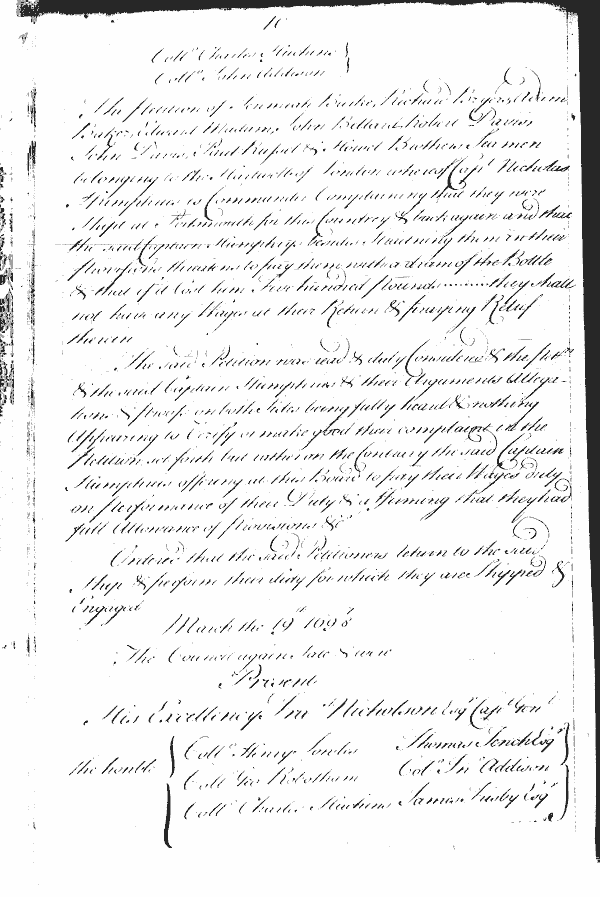 Coll.o Charles Hutchins
Coll.o John Addison
The Petition of Jeremiah Burke, Richard Rogers, Adam
Baker, Edward Madam, John Bellard, Robert Davies
John Davis, Paul Russel & Howel Seamen
belonging to the of London whereof Cap.t Nicholas
Humphreys is Commander Complaining that they were
Shipt at Portsmouth for this Countrey & back again and that
the said Captain Humphrys besides Straitning them in their
provisions threatens to pay them with a dram of the Bottle
& that if it Cost him five hundred pounds they shall
not have any Wages at their Return & praying Relief
therein
The said Petition was read & duly Considered & the
& the said Captain Humphreys & their Arguments Allega-
tions & proofs on both sides being fully heard & nothing
Appearing to Verify or make good their complaint in the
Petition set forth but rather on the Contrary the said Captain
Humphreys offering at this Board to pay their Wages duly
on performance of their Duty & affirming that they had
full Allowance of provisions &c
Ordered that the said Petitioners return to the said
Ship & perform their duty for which they are Shipped &
Engaged
March the 19th 1695
The Council again Sate & were
Present
His Excellency Fra: Nicholson Esq.r Cap.t Gen.l
the hon.ble Coll.o Henry Jowles Thomas Tench Esq.r
Coll.o Geo Robotham Col.o Jn.o Addison
Coll.o Charles Hutchins James Frisby Esq.r